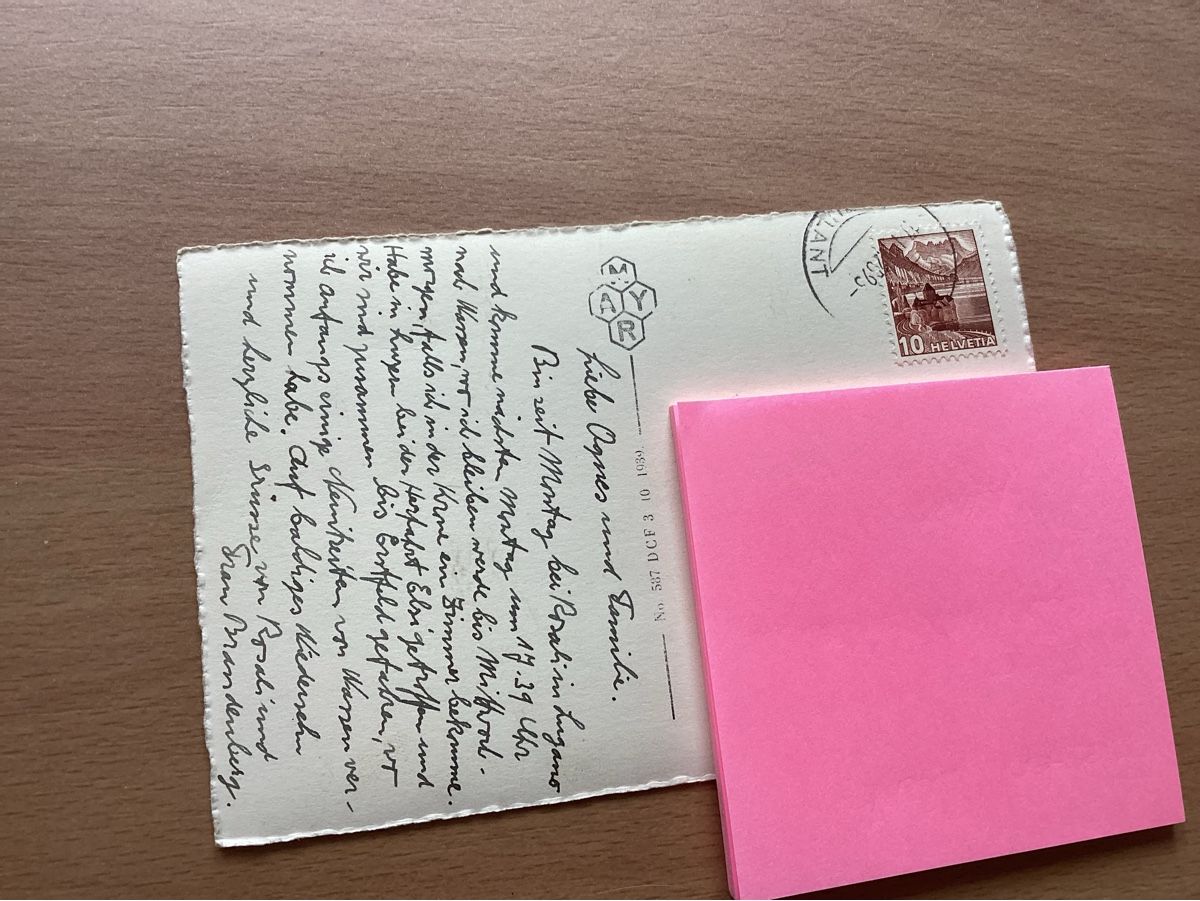 Liebe Agnes und Familie.
Bin seit Montag bei Rosali in Lugano
und komme nächsten Montag um 17.39 Uhr
nach Wassen, wo ich bleiben werde bis Mittwoch-
morgen, falls ich in der Krone ein Zimmer bekomme.
Habe in Luzern bei der Herfahrt Elsi getroffen und
wir sind zusammen bis Erstfeld gefahren, wo
ich anfangs einige Neuigkeiten von Wassen ver-
nommen habe. Auf baldiges Wiedersehn
und herzliche Grüsse von Rosali und
Brandenberg.
MYAR
No. 587 DCF 3 10 1939
10 HELVETIA